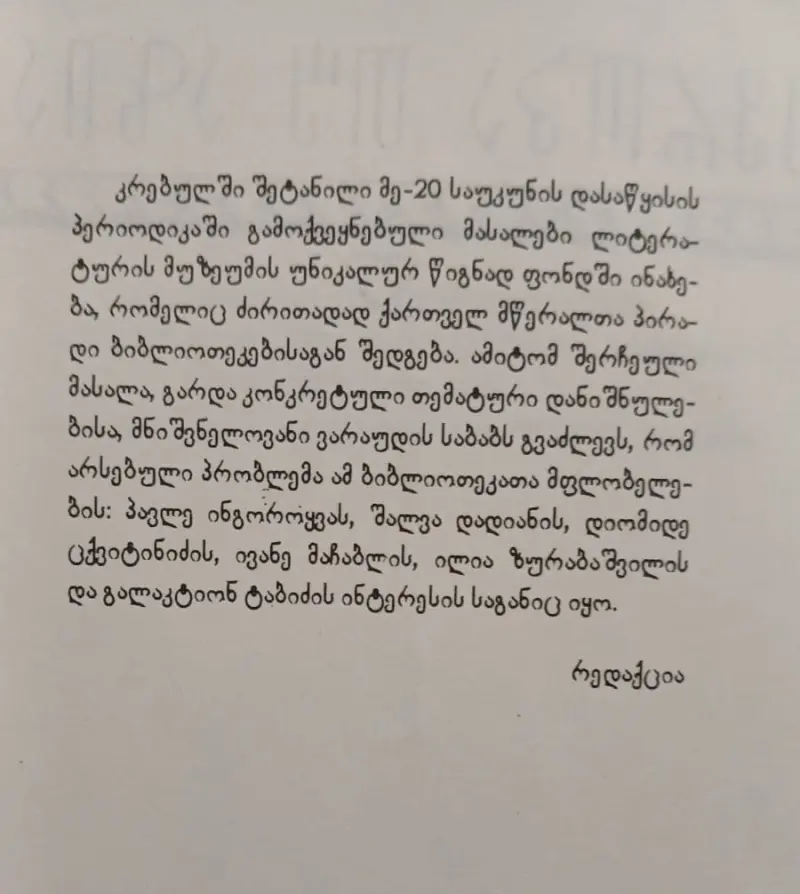 კრებულში შეტანილი მე-20 საუკუნის დასაწყისის
პერიოდიკაში გამოქვეყნებული მასალები ლიტერა-
ტურის მუზეუმის უნიკალურ წიგნად ფონდში ინახე-
ბა, რომელიც ძირითადად ქართველ მწერალთა პირა-
დი ბიბლიოთეკებისაგან შედგება. ამიტომ შერჩეული
მასალა, გარდა კონკრეტული თემატური დანიშნულე-
ბისა, მნიშვნელოვანი ვარაუდის საბაბს გვაძლევს, რომ
არსებული პრობლემა ამ ბიბლიოთეკათა მფლობელე-
ბის: პავლე ინგოროყვას, შალვა დადიანის, დიომიდე
ცქვიტინიძის, ივანე მაჩაბლის, ილია ზურაბაშვილის
და გალაკტიონ ტაბიძის ინტერესის საგანიც იყო.
რედაქცია